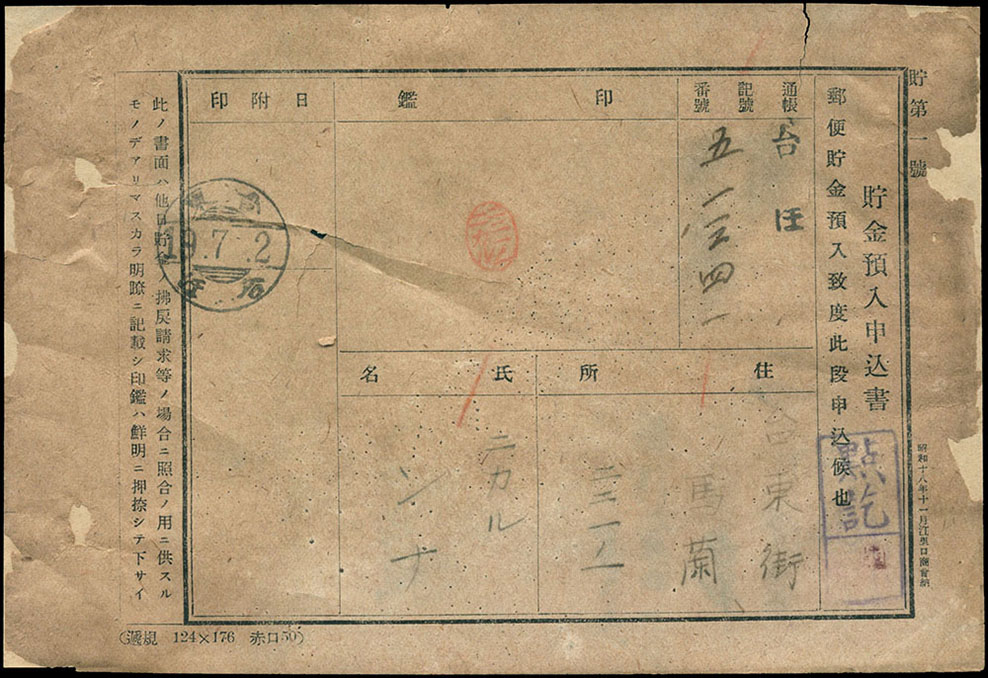 貯第一號
貯金預入申込書
郵便貯金預入致度此段申込候也
昭和十八年十一月江里口商會納
點訖
通帳
記號
番號
台 汪
五一三四一
印鑑
日附印
19.7.2
住所
台東街
馬蘭
氏名
ニカル
シナ
此ノ書面ハ他日貯金ノ拂戾請求等ノ場合ニ照合ノ用ニ供スル
モノデアリマスカラ明瞭ニ記載シ印鑑ハ鮮明ニ押捺シテ下サイ
(遞規 124×176 赤口50)